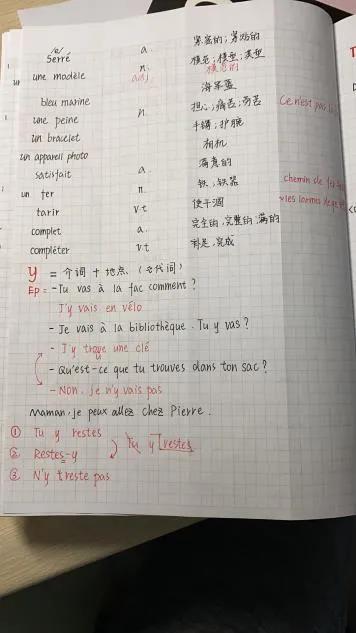 /e/
Serré a. 紧密的；
un une modèle n. adj. 模范；模型；典型 模范的
bleu marine 海军蓝
une peine n. 担心；痛苦；劳苦 Ce n'est pas
un bracelet 手镯；护腕
un appareil photo 相机
satisfait a. 满意的
un fer n. 铁；铁器 chemin de fer
tarir v.t 使干涸 les larmes
complet a. 完全的，完整的；满的
compléter v.t 补足，完成
y = 介词 + 地点。（古代词）
Ep = - Tu vas à la fac comment ?
J'y vais en vélo
- Je vais à la bibliothèque. Tu y vas ?
- J'y trouve une clé
- Qu'est-ce que tu trouves dans ton sac ?
- Non. je n'y vais pas
Maman. je peux allez chez Pierre.
① Tu y restes
② Restes-y Tu y restes
③ N'y reste pas